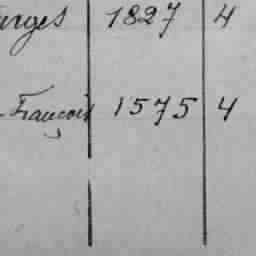 erges 1827 4
-François 1575 4